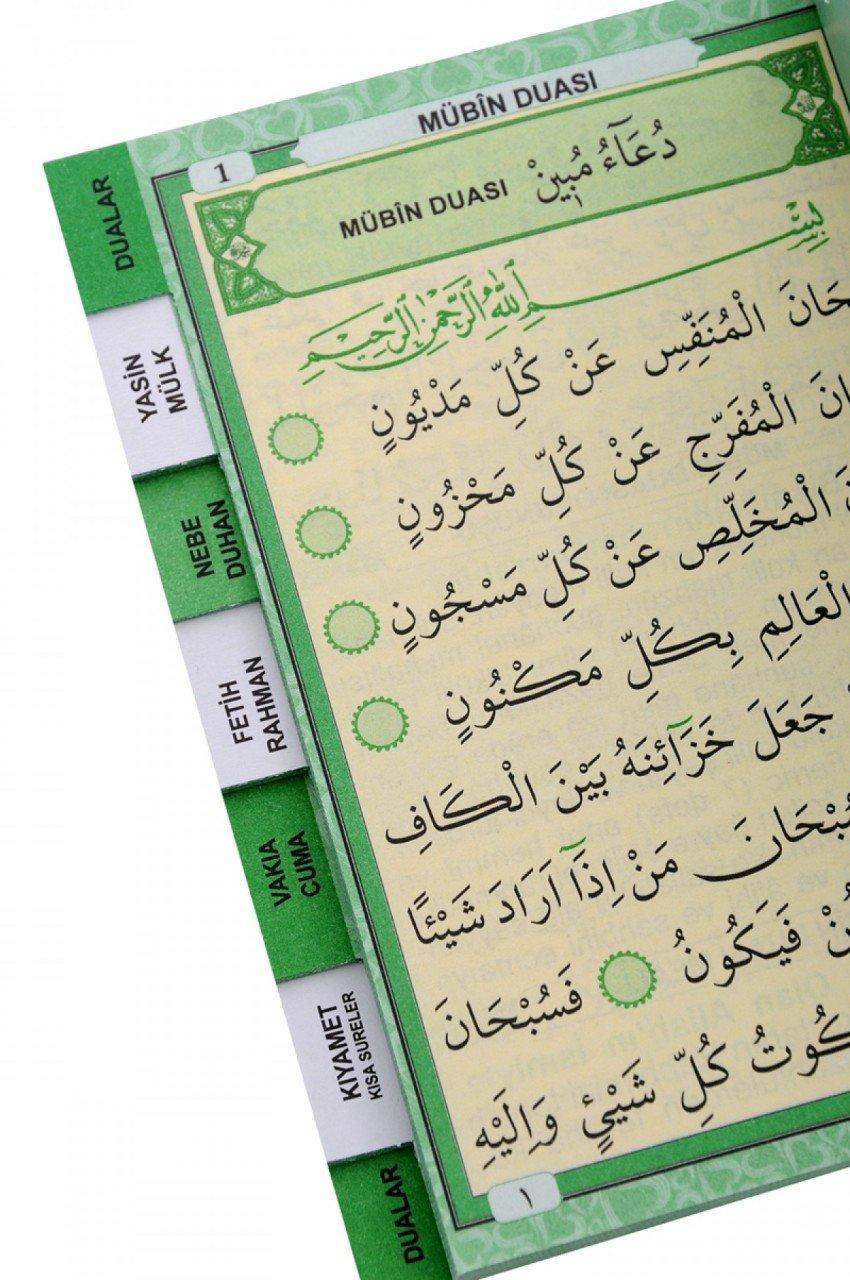 MÜBÎN DUASI
1
MÜBÎN DUASI دُعَآءُ مُبِينْ
بِسْمِ اللّٰهِ الرَّحْمٰنِ الرَّحِيمِ
الْمُنَفِّسِ عَنْ كُلِّ مَدْيُونٍ
الْمُفَرِّجِ عَنْ كُلِّ مَحْزُونٍ
الْمُخَلِّصِ عَنْ كُلِّ مَسْجُونٍ
الْعَالِمِ بِكُلِّ مَكْنُونٍ
جَعَلَ خَزَآئِنَهُ بَيْنَ الْكَافِ
مَنْ اِذَٓا اَرَادَ شَيْئًا
فَيَكُونُ فَسُبْحَانَ
كُلِّ شَيْئٍ وَاِلَيْهِ
١
DUALAR
YASİN
MÜLK
NEBE
DUHAN
FETİH
RAHMAN
VAKIA
CUMA
KIYAMET
KISA SURELER
DUALAR